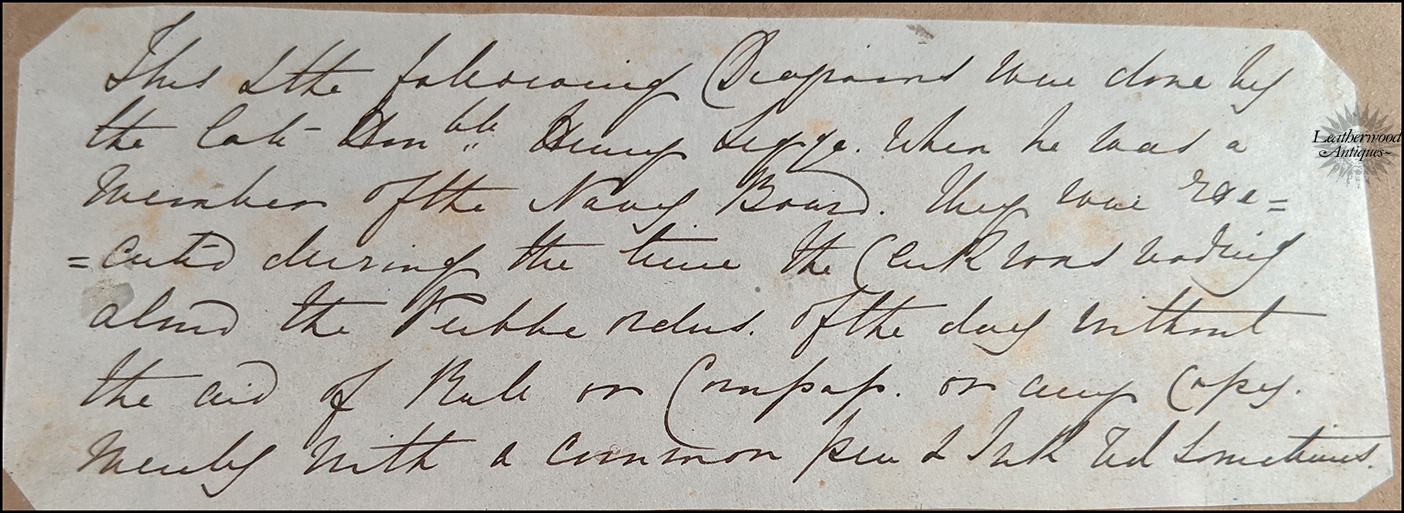 This & the following Diagrams were done by
the late Hon.ble Henry Legge. when he was a
Member of the Navy Board. They were exe=
=cuted during the time the Clerk was reading
aloud the Public orders. of the day without
the aid of Rule or Compass. or any Copy.
merely with a common pen & Ink Red sometimes.
Leatherwood
Antiques